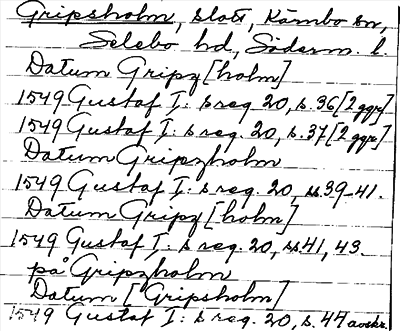 Gripsholm, slott, Kärnbo sn,
Selebo hd, Söderm. l.
Datum Gripz [holm]
1549 Gustaf I: s reg. 20, s. 36 [2 ggr]
1549 Gustaf I: s reg. 20, s. 37 [2 ggr]
Datum Gripzholm
1549 Gustaf I: s reg. 20, ss 39-41.
Datum Gripz [holm]
1549 Gustaf I: s reg. 20, ss 41, 43.
på Gripzholm
Datum [Gripsholm]
1549 Gustaf I: s reg. 20, s. 44 avskr.